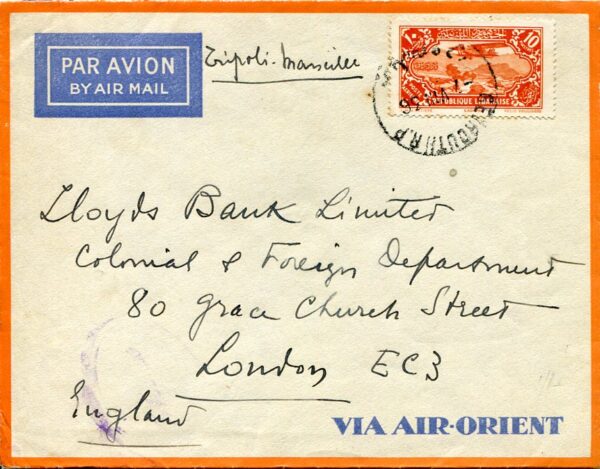 PAR AVION
BY AIR MAIL
Tripoli-Marseille
10
REPUBLIQUE LIBANAISE
BEYROUTH R.P.
Lloyds Bank Limited
Colonial & Foreign Department
80 Grace Church Street
London EC3
England
VIA AIR-ORIENT